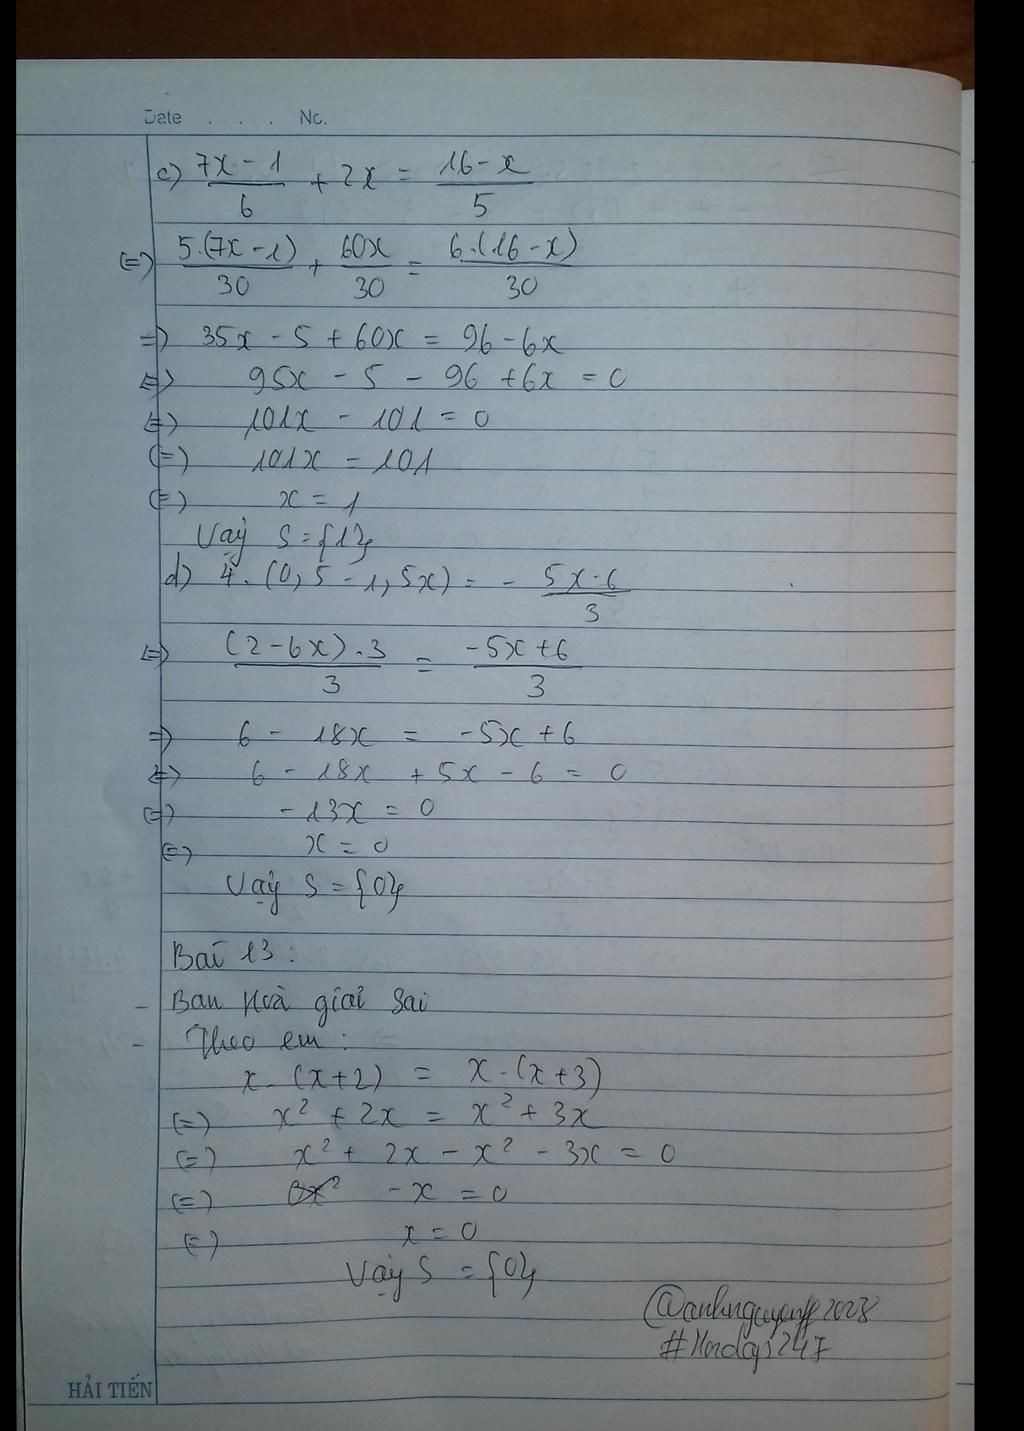 Date . . . No.
c) (7x - 1)/6 + 2x = (16 - x)/5
(=) 5.(7x - 1)/30 + 60x/30 = 6.(16 - x)/30
=) 35x - 5 + 60x = 96 - 6x
(=) 95x - 5 - 96 + 6x = 0
(=) 101x - 101 = 0
(=) 101x = 101
(=) x = 1
Vậy S = {1}
d) 4.(0,5 - 1,5x) = - (5x - 6)/3
(=) (2 - 6x).3/3 = (-5x + 6)/3
=) 6 - 18x = -5x + 6
(=) 6 - 18x + 5x - 6 = 0
(=) -13x = 0
(=) x = 0
Vậy S = {0}
Bài 13:
- Bạn Hoà giải sai
- Theo em:
x.(x+2) = x.(x+3)
(=) x² + 2x = x² + 3x
(=) x² + 2x - x² - 3x = 0
(=) 0x² - x = 0
(=) x = 0
Vậy S = {0}
HẢI TIẾN